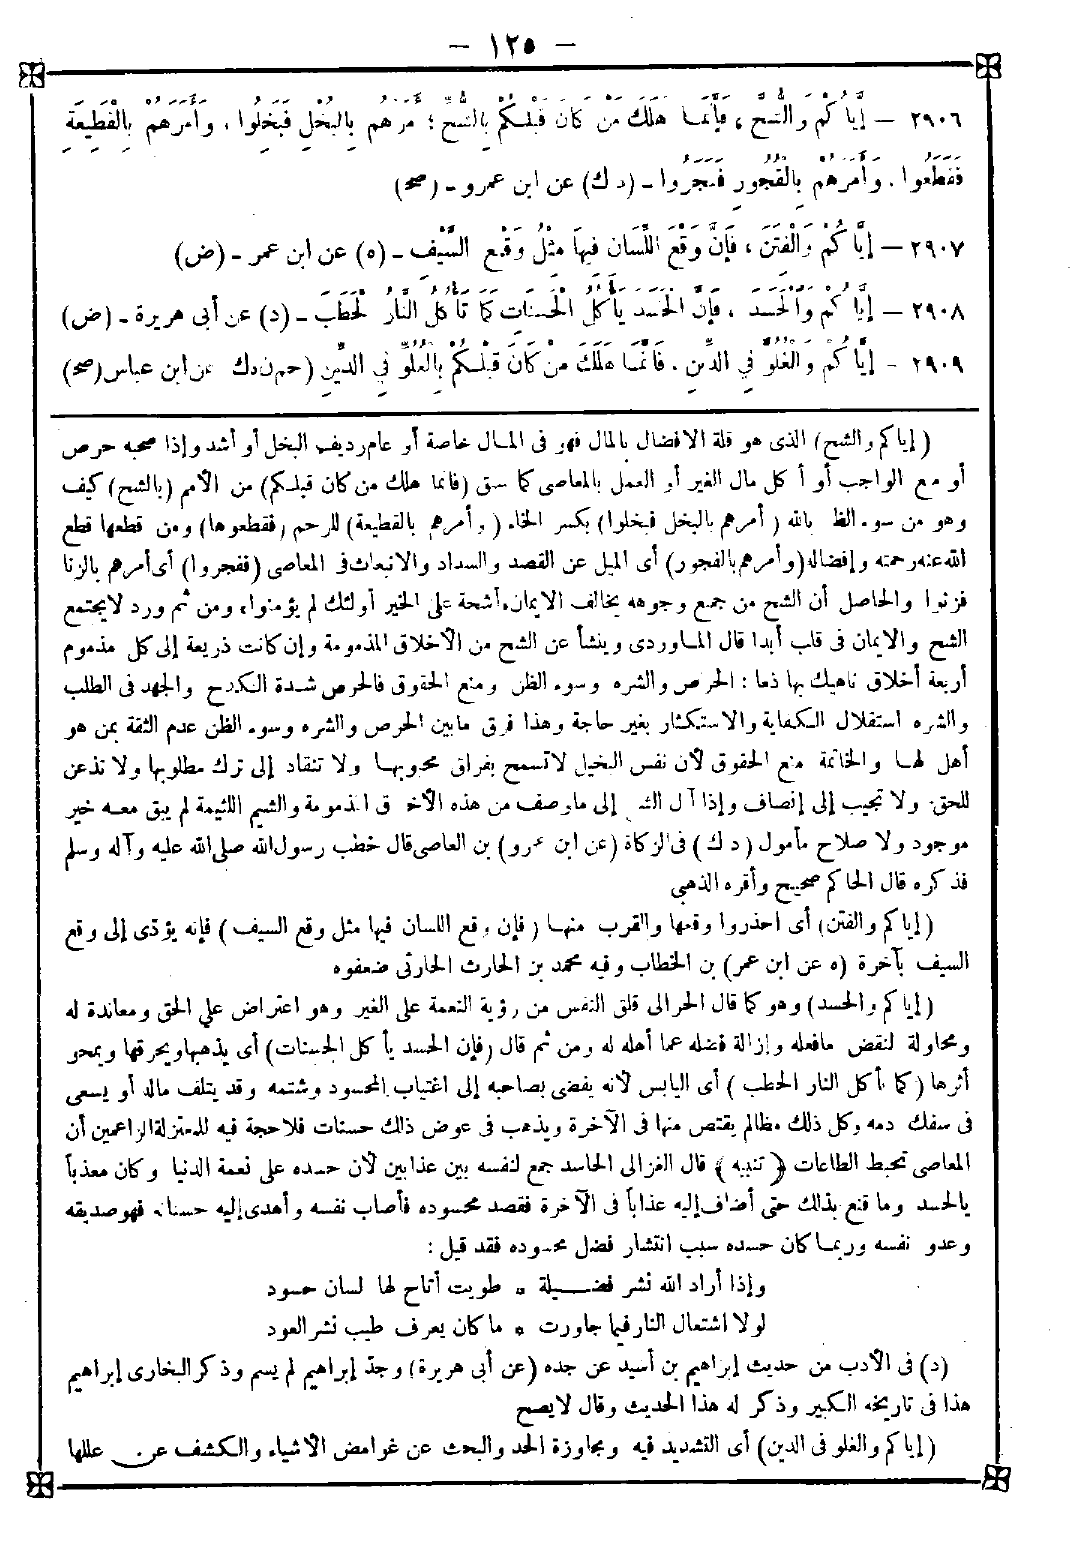 – ١٢٥ –
٢٩٠٦ – إِيَّاكُمْ وَالشُّحَّ، فَإِنَّمَا هَلَكَ مَنْ كَانَ قَبْلَكُمْ بِالشُّحِّ: أَمَرَهُمْ بِالْبُخْلِ فَبَخِلُوا، وَأَمَرَهُمْ بِالْقَطِيعَةِ
فَقَطَعُوا، وَأَمَرَهُمْ بِالْفُجُورِ فَفَجَرُوا – (د ك) عن ابن عمرو – (صح)
٢٩٠٧ – إِيَّاكُمْ وَالْفِتَنَ، فَإِنَّ وَقْعَ اللِّسَانِ فِيهَا مِثْلُ وَقْعِ السَّيْفِ – (ه) عن ابن عمر – (ض)
٢٩٠٨ – إِيَّاكُمْ وَالْحَسَدَ، فَإِنَّ الْحَسَدَ يَأْكُلُ الْحَسَنَاتِ كَمَا تَأْكُلُ النَّارُ الْحَطَبَ – (د) عن أبى هريرة – (ض)
٢٩٠٩ – إِيَّاكُمْ وَالْغُلُوَّ فِي الدِّينِ، فَإِنَّمَا هَلَكَ مَنْ كَانَ قَبْلَكُمْ بِالْغُلُوِّ فِي الدِّينِ (حم ن ه ك عن ابن عباس (صح)
(إياكم والشح) الذى هو قلة الافضال بالمال فهو فى المال خاصة أو عام رديف البخل أو أشد وإذا صحبه حرص
أو مع الواجب أو أكل مال الغير أو العمل بالمعاصى كما سبق (فانما هلك من كان قبلكم) من الأمم (بالشح) كيف
وهو من سوء الظن بالله (أمرهم بالبخل فبخلوا) بكسر الخاء (وأمرهم بالقطيعة) للرحم (فقطعوها) ومن قطعها قطع
الله عنه رحمته وإفضاله (وأمرهم بالفجور) أى الميل عن القصد والسداد والانبعاث فى المعاصى (ففجروا) أى أمرهم بالزنا
فزنوا والحاصل أن الشح من جميع وجوهه يخالف الايمان،أشحة على الخير أولئك لم يؤمنوا، ومن ثم ورد لايجتمع
الشح والايمان فى قلب أبدا قال الماوردى وينشأ عن الشح من الأخلاق المذمومة وإن كانت ذريعة إلى كل مذموم
أربعة أخلاق ناهيك بها ذما: الحرص والشره وسوء الظن ومنع الحقوق فالحرص شدة الكدح والجهد فى الطلب
والشره استقلال الكفاية والاستكثار بغير حاجة وهذا فرق مابين الحرص والشره وسوء الظن عدم الثقة بمن هو
أهل لها والخاتمة منع الحقوق لأن نفس البخيل لاتسمح بفراق محبوبها ولا تنقاد إلى ترك مطلوبها ولا تذعن
للحق ولا تجيب إلى إنصاف وإذا آل إلى ماوصف من هذه الأخلاق المذمومة والشيم اللئيمة لم يبق معه خير
موجود ولا صلاح مأمول (د ك) فى الزكاة (عن ابن عمرو) بن العاصى قال خطب رسول الله صلى الله عليه وآله وسلم
فذكره قال الحاكم صحيح وأقره الذهبى
(إياكم والفتن) أى احذروا وقعها والقرب منها (فإن وقع اللسان فيها مثل وقع السيف) فإنه يؤدّى إلى وقع
السيف بآخرة (ه عن ابن عمر) بن الخطاب وفيه محمد بن الحارث الحارثى ضعفوه
(إياكم والحسد) وهو كما قال الحرالى قلق النفس من رؤية النعمة على الغير وهو اعتراض على الحق ومعاندة له
ومحاولة لنقض مافعله وإزالة فضله عما أهله له ومن ثم قال (فإن الحسد يأكل الحسنات) أى يذهبها ويحرقها ويمحو
أثرها (كما تأكل النار الحطب) أى اليابس لأنه يفضى بصاحبه إلى اغتياب المحسود وشتمه وقد يتلف ماله أو يسعى
فى سفك دمه وكل ذلك مظالم يقتص منها فى الآخرة ويذهب فى عوض ذلك حسنات فلاحجة فيه للمعتزلة الزاعمين أن
المعاصى تحبط الطاعات (تنبيه) قال الغزالى الحاسد جمع لنفسه بين عذابين لأن حسده على نعمة الدنيا وكان معذباً
بالحسد وما قنع بذلك حتى أضاف إليه عذاباً فى الآخرة فقصد محسوده فأصاب نفسه وأهدى إليه حسناته فهو صديقه
وعدو نفسه وربما كان حسده سبب انتشار فضل محسوده فقد قيل:
وإذا أراد الله نشر فضيلة * طويت أتاح لها لسان حسود
لولا اشتعال النار فيما جاورت * ماكان يعرف طيب نشر العود
(د) فى الأدب من حديث إبراهيم بن أسيد عن جده (عن أبى هريرة) وجدّ إبراهيم لم يسم وذكر البخارى إبراهيم
هذا فى تاريخه الكبير وذكر له هذا الحديث وقال لايصح
(إياكم والغلو فى الدين) أى التشديد فيه ومجاوزة الحد والبحث عن غوامض الأشياء والكشف عن عللها